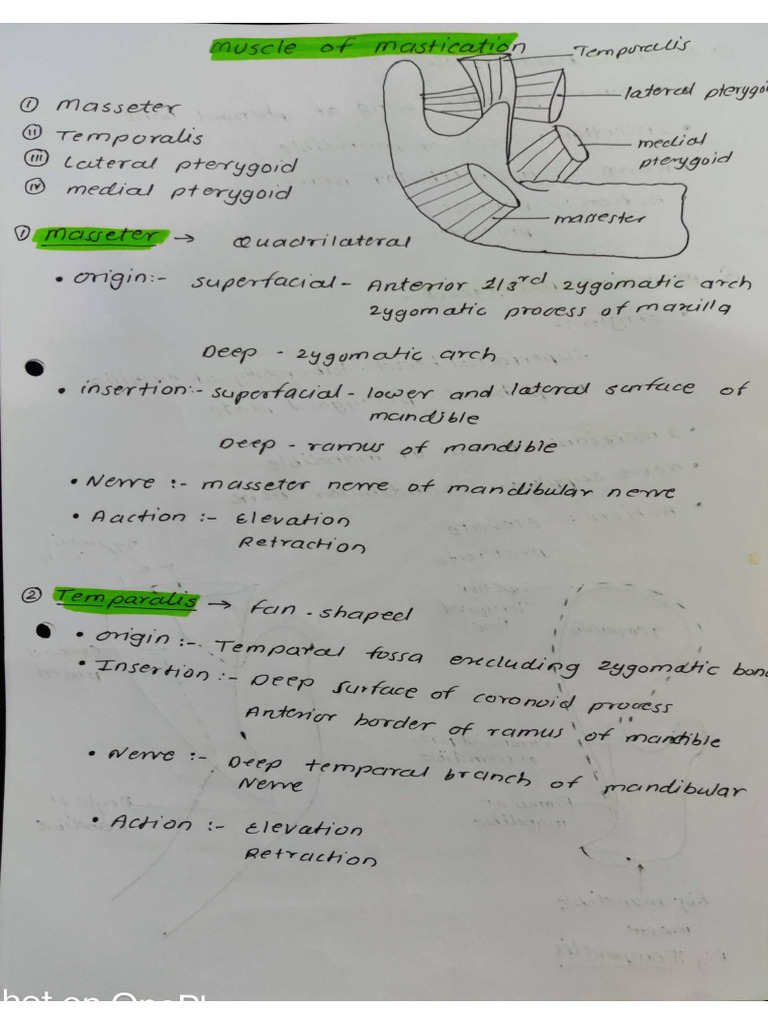 muscle of mastication
Temporalis
lateral pterygoi
medial
pterygoid
massester
① Masseter
ⅱ Temporalis
ⅲ Lateral pterygoid
ⅳ medial pterygoid
① Masseter → Quadrilateral
• origin:- superfacial - Anterior 2/3rd zygomatic arch
zygomatic process of maxilla
Deep - zygomatic arch
• insertion:- superfacial - lower and lateral surface of
mandible
Deep - ramus of mandible
• Nerve :- masseter nerve of mandibular nerve
• Aaction :- Elevation
Retraction
② Temparalis → fan - shaped
• origin :- Temparal fossa excluding zygomatic bone
• Insertion :- Deep surface of coronoid process
Anterior border of ramus of mandible
• Nerve :- Deep temparal branch of mandibular
Nerve
• Action :- Elevation
Retraction